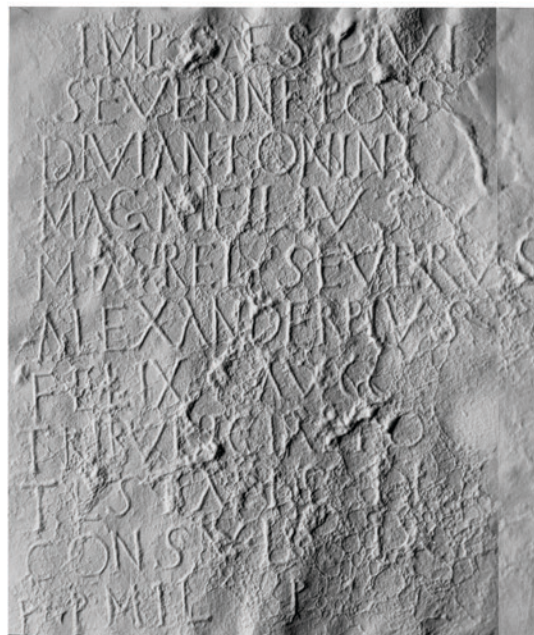 IMP CAES DIVI
SEVERI NEPOS
DIVI ANTONINI
MAGNI FILIVS
M AVREL SEVERVS
ALEXANDER PIVS
FELIX AVG
TRIBVNICIA PO
TESTATE II
CONSVL
P P MIL P